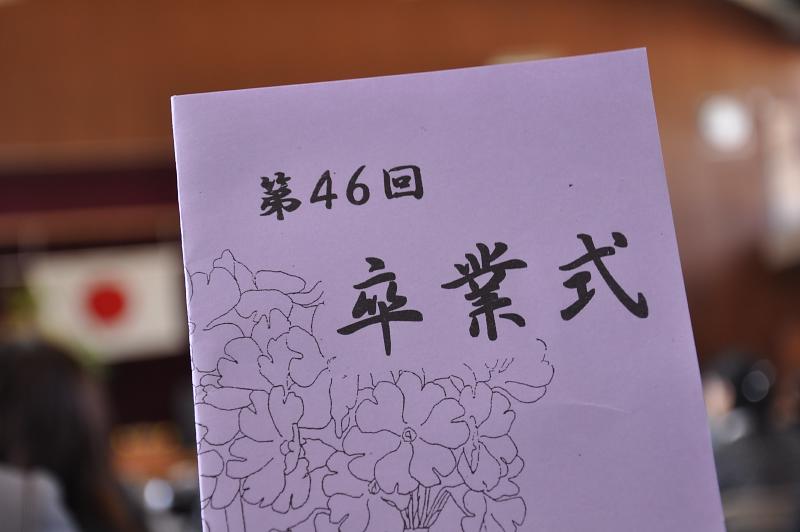 第46回
卒業式